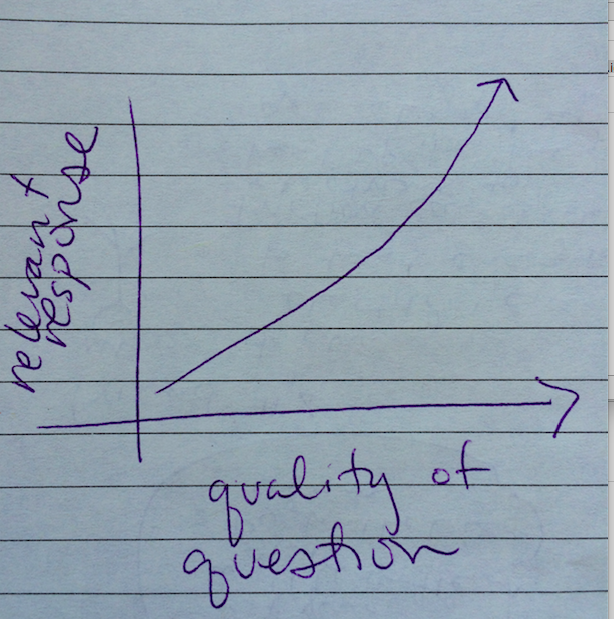 relevant
response
quality of
question